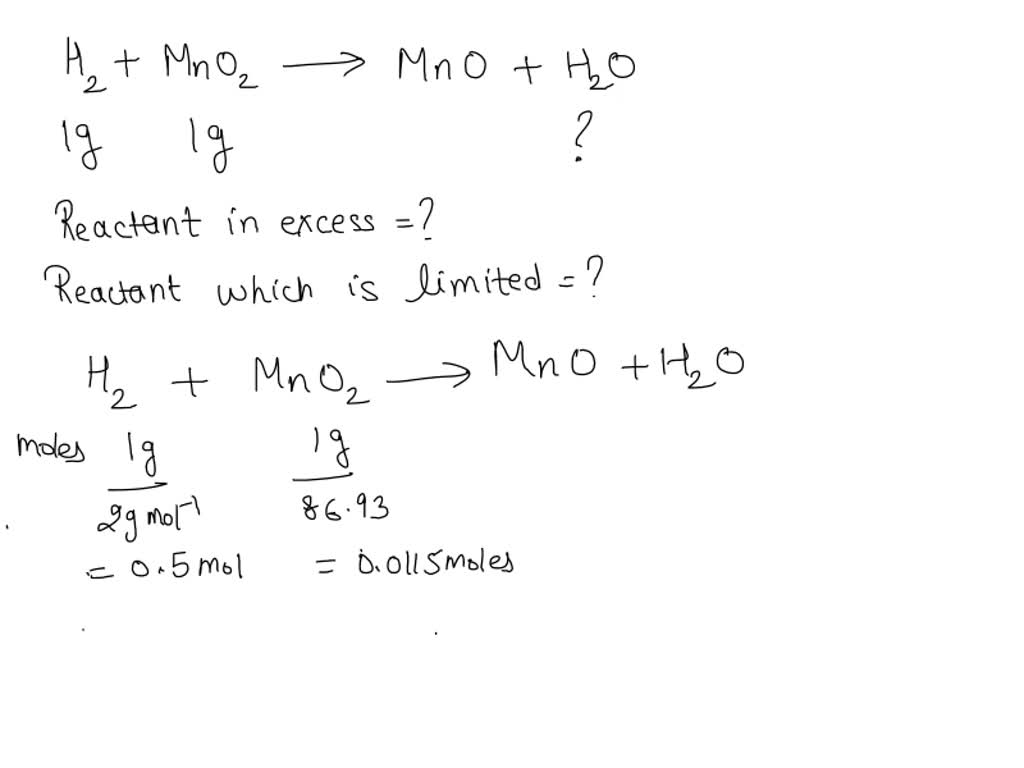 H₂ + MnO₂ ⟶ MnO + H₂O
1g 1g ?
Reactant in excess = ?
Reactant which is limited = ?
H₂ + MnO₂ ⟶ MnO + H₂O
moles 1g 1g
2g mol⁻¹ 86.93
= 0.5 mol = 0.0115 moles